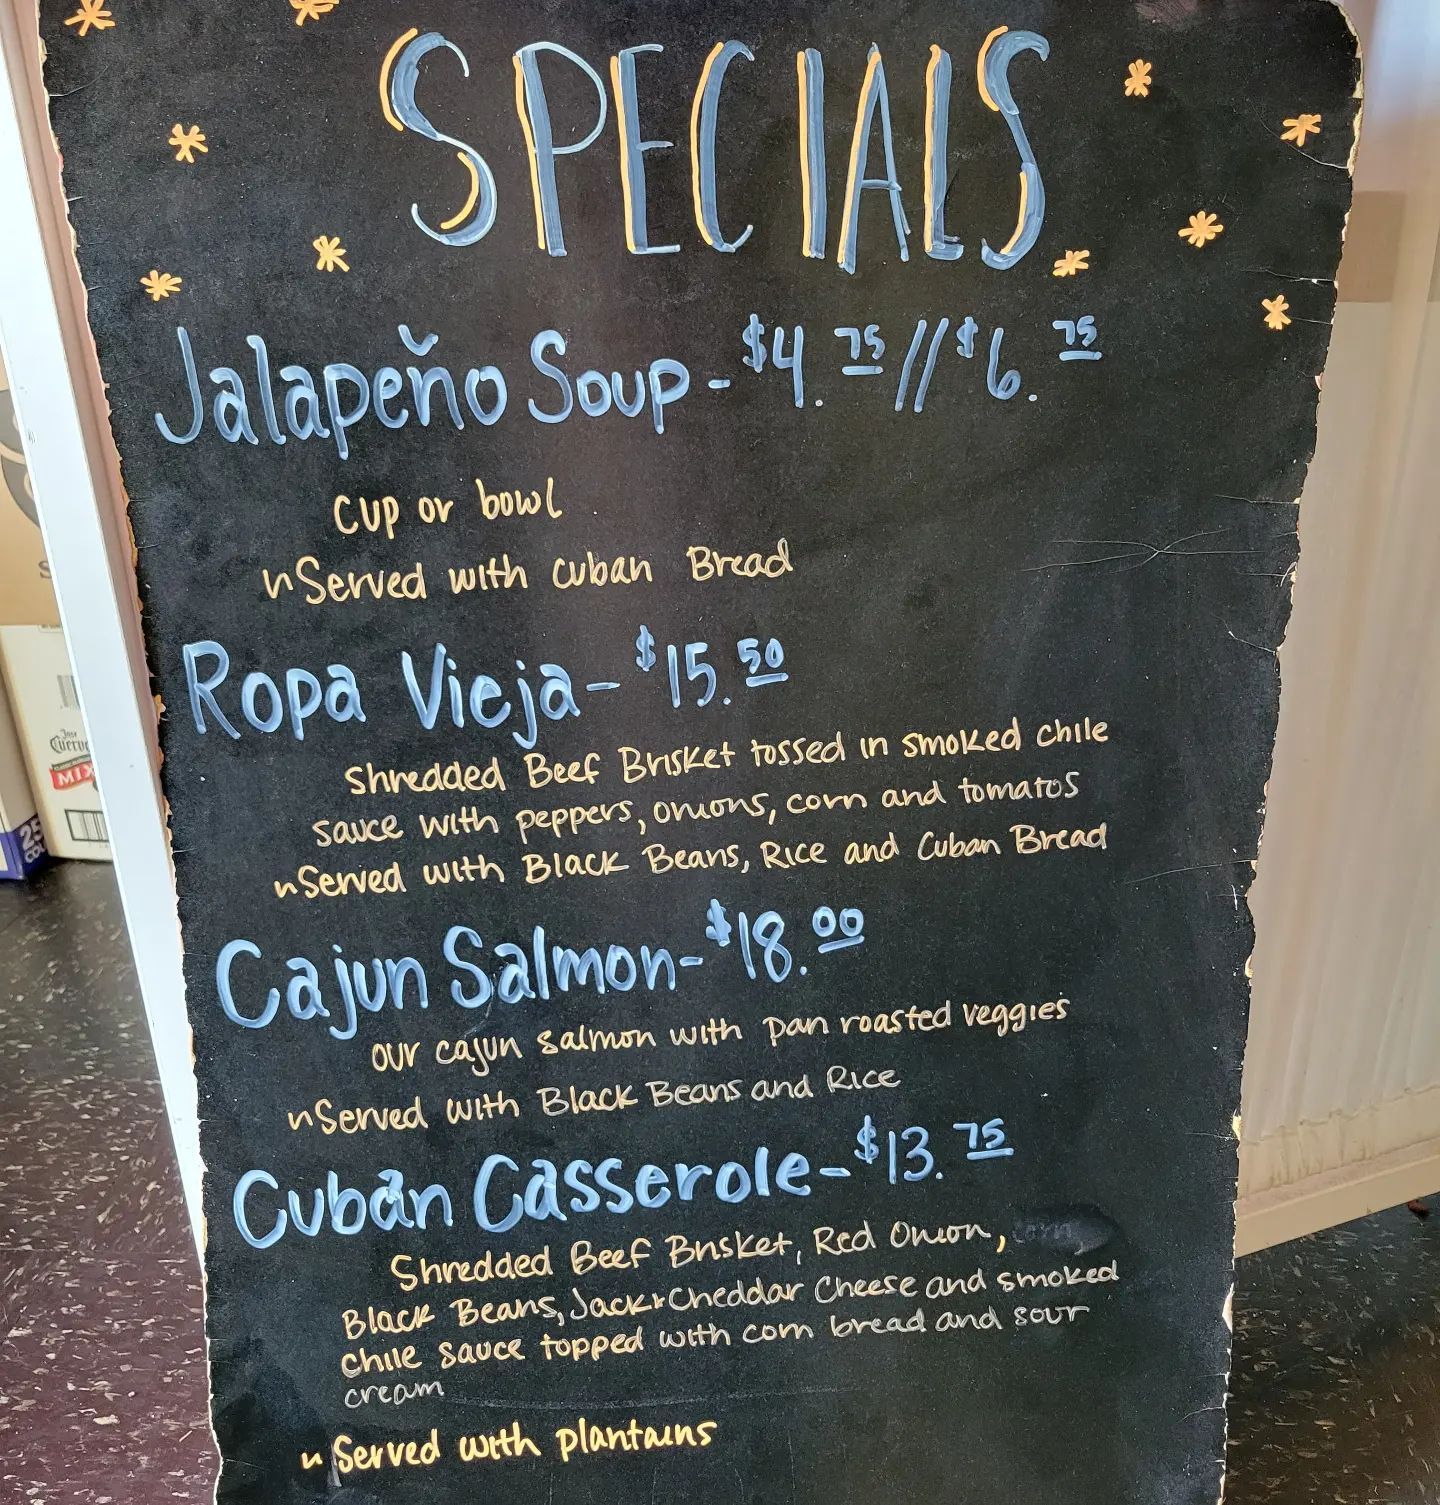 SPECIALS
Jalapeño Soup - $4.75 // $6.75
cup or bowl
~Served with cuban Bread
Ropa Vieja - $15.50
Shredded Beef Brisket tossed in smoked chile
sauce with peppers, onions, corn and tomatos
~Served with Black Beans, Rice and Cuban Bread
Cajun Salmon - $18.00
our cajun salmon with pan roasted veggies
~Served with Black Beans and Rice
Cuban Casserole - $13.75
Shredded Beef Brisket, Red Onion,
Black Beans, Jack & Cheddar Cheese and smoked
chile sauce topped with corn bread and sour
cream
~Served with plantains
Jose
Cuervo
MIX
25